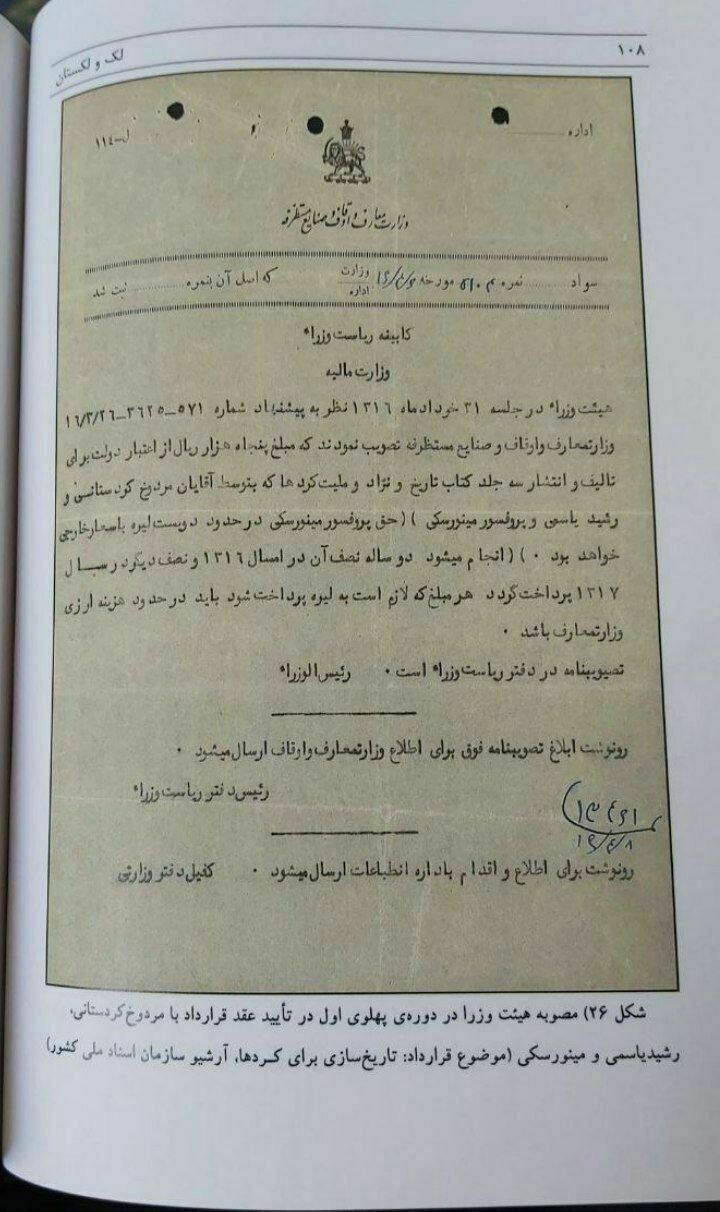 ۱۰۸
لک و لکستان
اداره
ل-۱۱۴
وزارت معارف و اوقاف و صنایع مستظرفه
سواد ............ نمره ............ مورخه ............ وزارت اداره که اصل آن بنمره ............ ثبت شد
کابینه ریاست وزراء
وزارت مالیه
هیئت وزراء در جلسه ۳۱ خرداد ماه ۱۳۱۶ نظر به پیشنهاد شماره ۵۷۱-۳۶۲۵-۱۶/۳/۲۶
وزارتمعارف و اوقاف و صنایع مستظرفه تصویب نمودند که مبلغ پنجاه هزار ریال از اعتبار دولت برای
تالیف و انتشار سه جلد کتاب تاریخ و نژاد و ملیت کرد ها که بتوسط آقایان مردوخ کردستانی و
رشید یاسمی و پروفسور مینورسکی ) (حق پروفسور مینورسکی در حدود دویست لیره باسعار خارجی
خواهد بود ۰ ) (انجام میشود دو ساله نصف آن در امسال ۱۳۱۶ و نصف دیگر در سال
۱۳۱۷ پرداخت گردد هر مبلغ که لازم است به لیره پرداخت شود باید در حدود هزینه ارزی
وزارتمعارف باشد ۰
تصویبنامه در دفتر ریاست وزراء است ۰ رئیس الوزراء
رونوشت ابلاغ تصویبنامه فوق برای اطلاع وزارتمعارف و اوقاف ارسال میشود ۰
رئیس دفتر ریاست وزراء
رونوشت برای اطلاع و اقدام باداره انطباعات ارسال میشود ۰ کفیل دفتر وزارتی
شکل ۲۶) مصوبه هیئت وزرا در دوره‌ی پهلوی اول در تأیید عقد قرارداد با مردوخ کردستانی،
رشیدیاسمی و مینورسکی (موضوع قرارداد: تاریخ‌سازی برای کـردها، آرشیو سازمان اسناد ملی کشور)